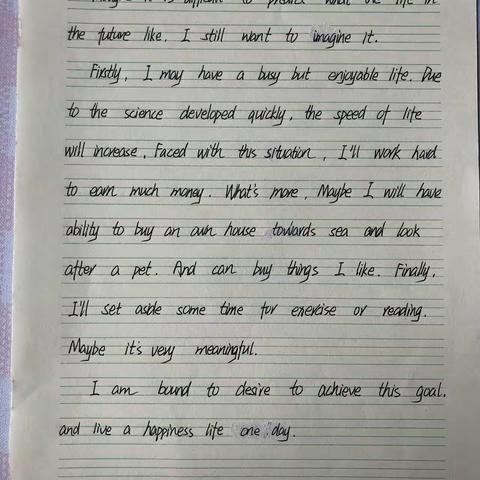 it is difficult to predict what the life in
the future like, I still want to imagine it.
Firstly, I may have a busy but enjoyable life. Due
to the science developed quickly, the speed of life
will increase. Faced with this situation, I'll work hard
to earn much money. What's more, Maybe I will have
ability to buy an own house towards sea and look
after a pet. And can buy things I like. Finally,
I'll set aside some time for exercise or reading.
Maybe it's very meaningful.
I am bound to desire to achieve this goal.
and live a happiness life one day.